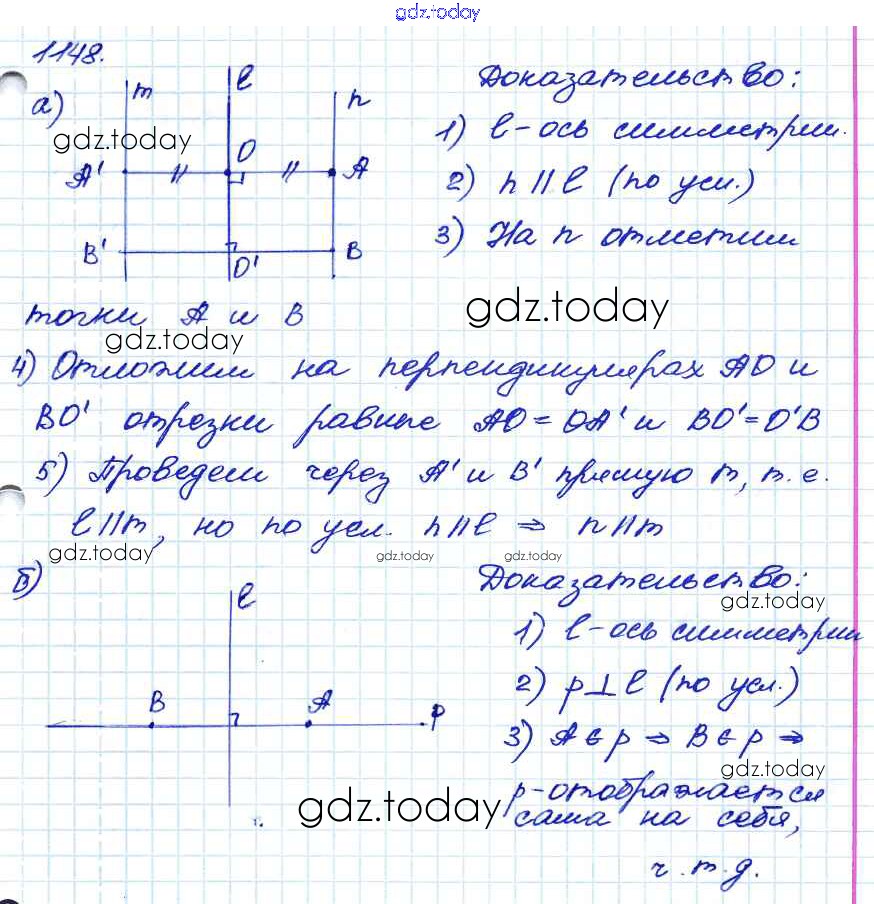 gdz.today
1148.
а) m l n
Доказательство:
gdz.today
1) l - ось симметрии.
A' O A
2) n || l (по усл.)
B' O' B
3) На n отметим
gdz.today
точки A и B
gdz.today
4) Отложим на перпендикулярах AO и
BO' отрезки равные AO = OA' и BO' = O'B
5) Проведем через A' и B' прямую m, т.е.
l || m, но по усл. n || l ⇒ n || m
gdz.today gdz.today gdz.today
б) l
Доказательство:
gdz.today
1) l - ось симметрии
2) p ⊥ l (по усл.)
B A P
3) A ∈ p ⇒ B ∈ p ⇒
gdz.today
p - отображается
gdz.today
сама на себя,
ч.т.д.